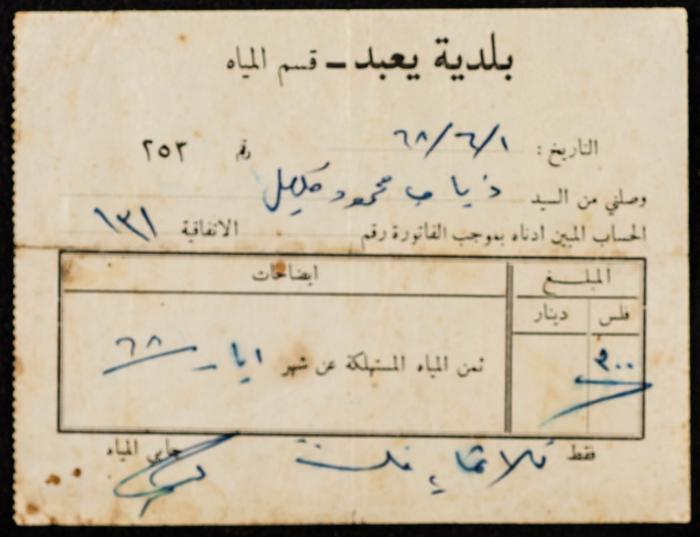 بلدية يعبد - قسم المياه
التاريخ : ٦٨/٦/١ رقم ٢٥٣
وصلني من السيد ذياب محمود
الحساب المبين ادناه بموجب الفاتورة رقم الاتفاقية ١٣١
المبلغ ايضاحات
فلس دينار
٣٠٠ ثمن المياه المستهلكة عن شهر ايار ٦٨
فقط ثلاثماية فلس جابي المياه